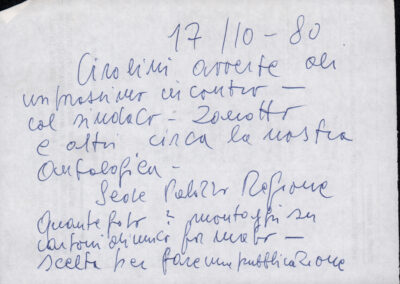 17/10-80
Cirolini avverte di
un prossimo incontro -
col sindaco - Zanotto
e altri circa la nostra
Antologica -
Sede Palazzo Ragione
Quante foto? montaggi su
cartoni di unico formato -
scelta per fare una pubblicazione